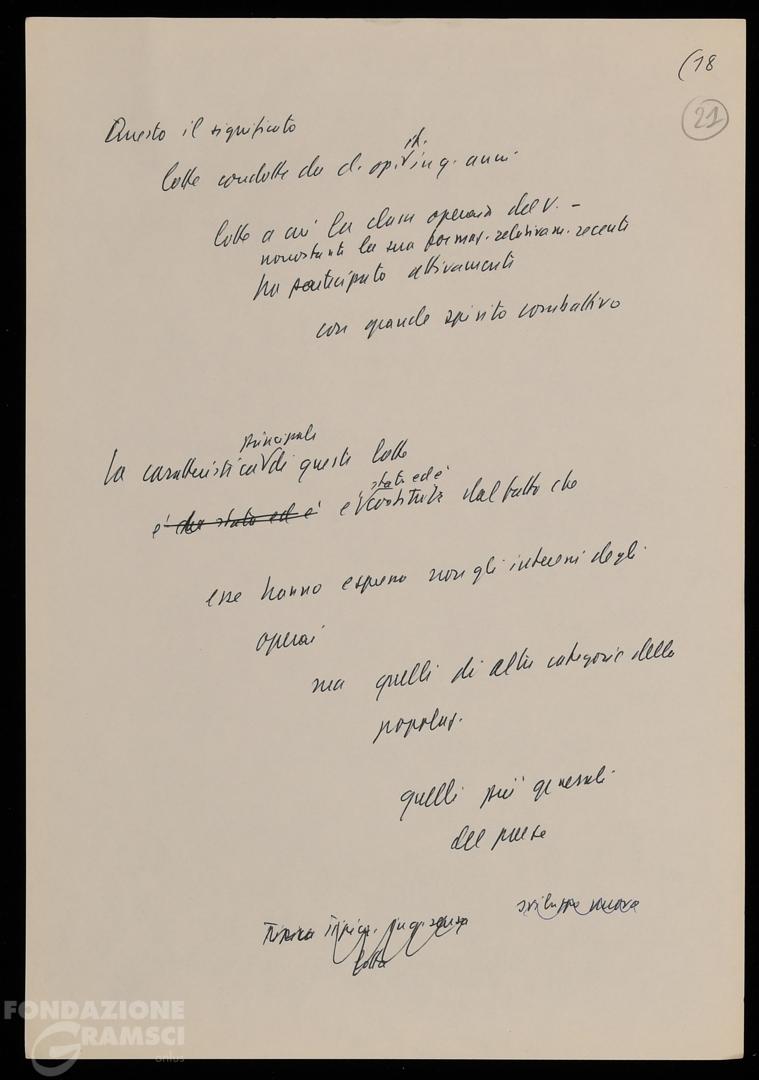 (18
21
Questo il significato
it.
lotte condotte da cl. op. in q. anni.
lotte a cui la classe operaia del V. -
nonostante la sua formaz. relativam. recente
ha partecipato attivamente
con grande spirito combattivo
principale
La caratteristica di queste lotte
stata ed è
e' che stata ed e' e' costituita dal fatto che
esse hanno espresso non gli interessi degli
operai
ma quelli di altre categorie della
popolaz.
quelli più generali
del paese
lotta
FONDAZIONE
GRAMSCI
onlus